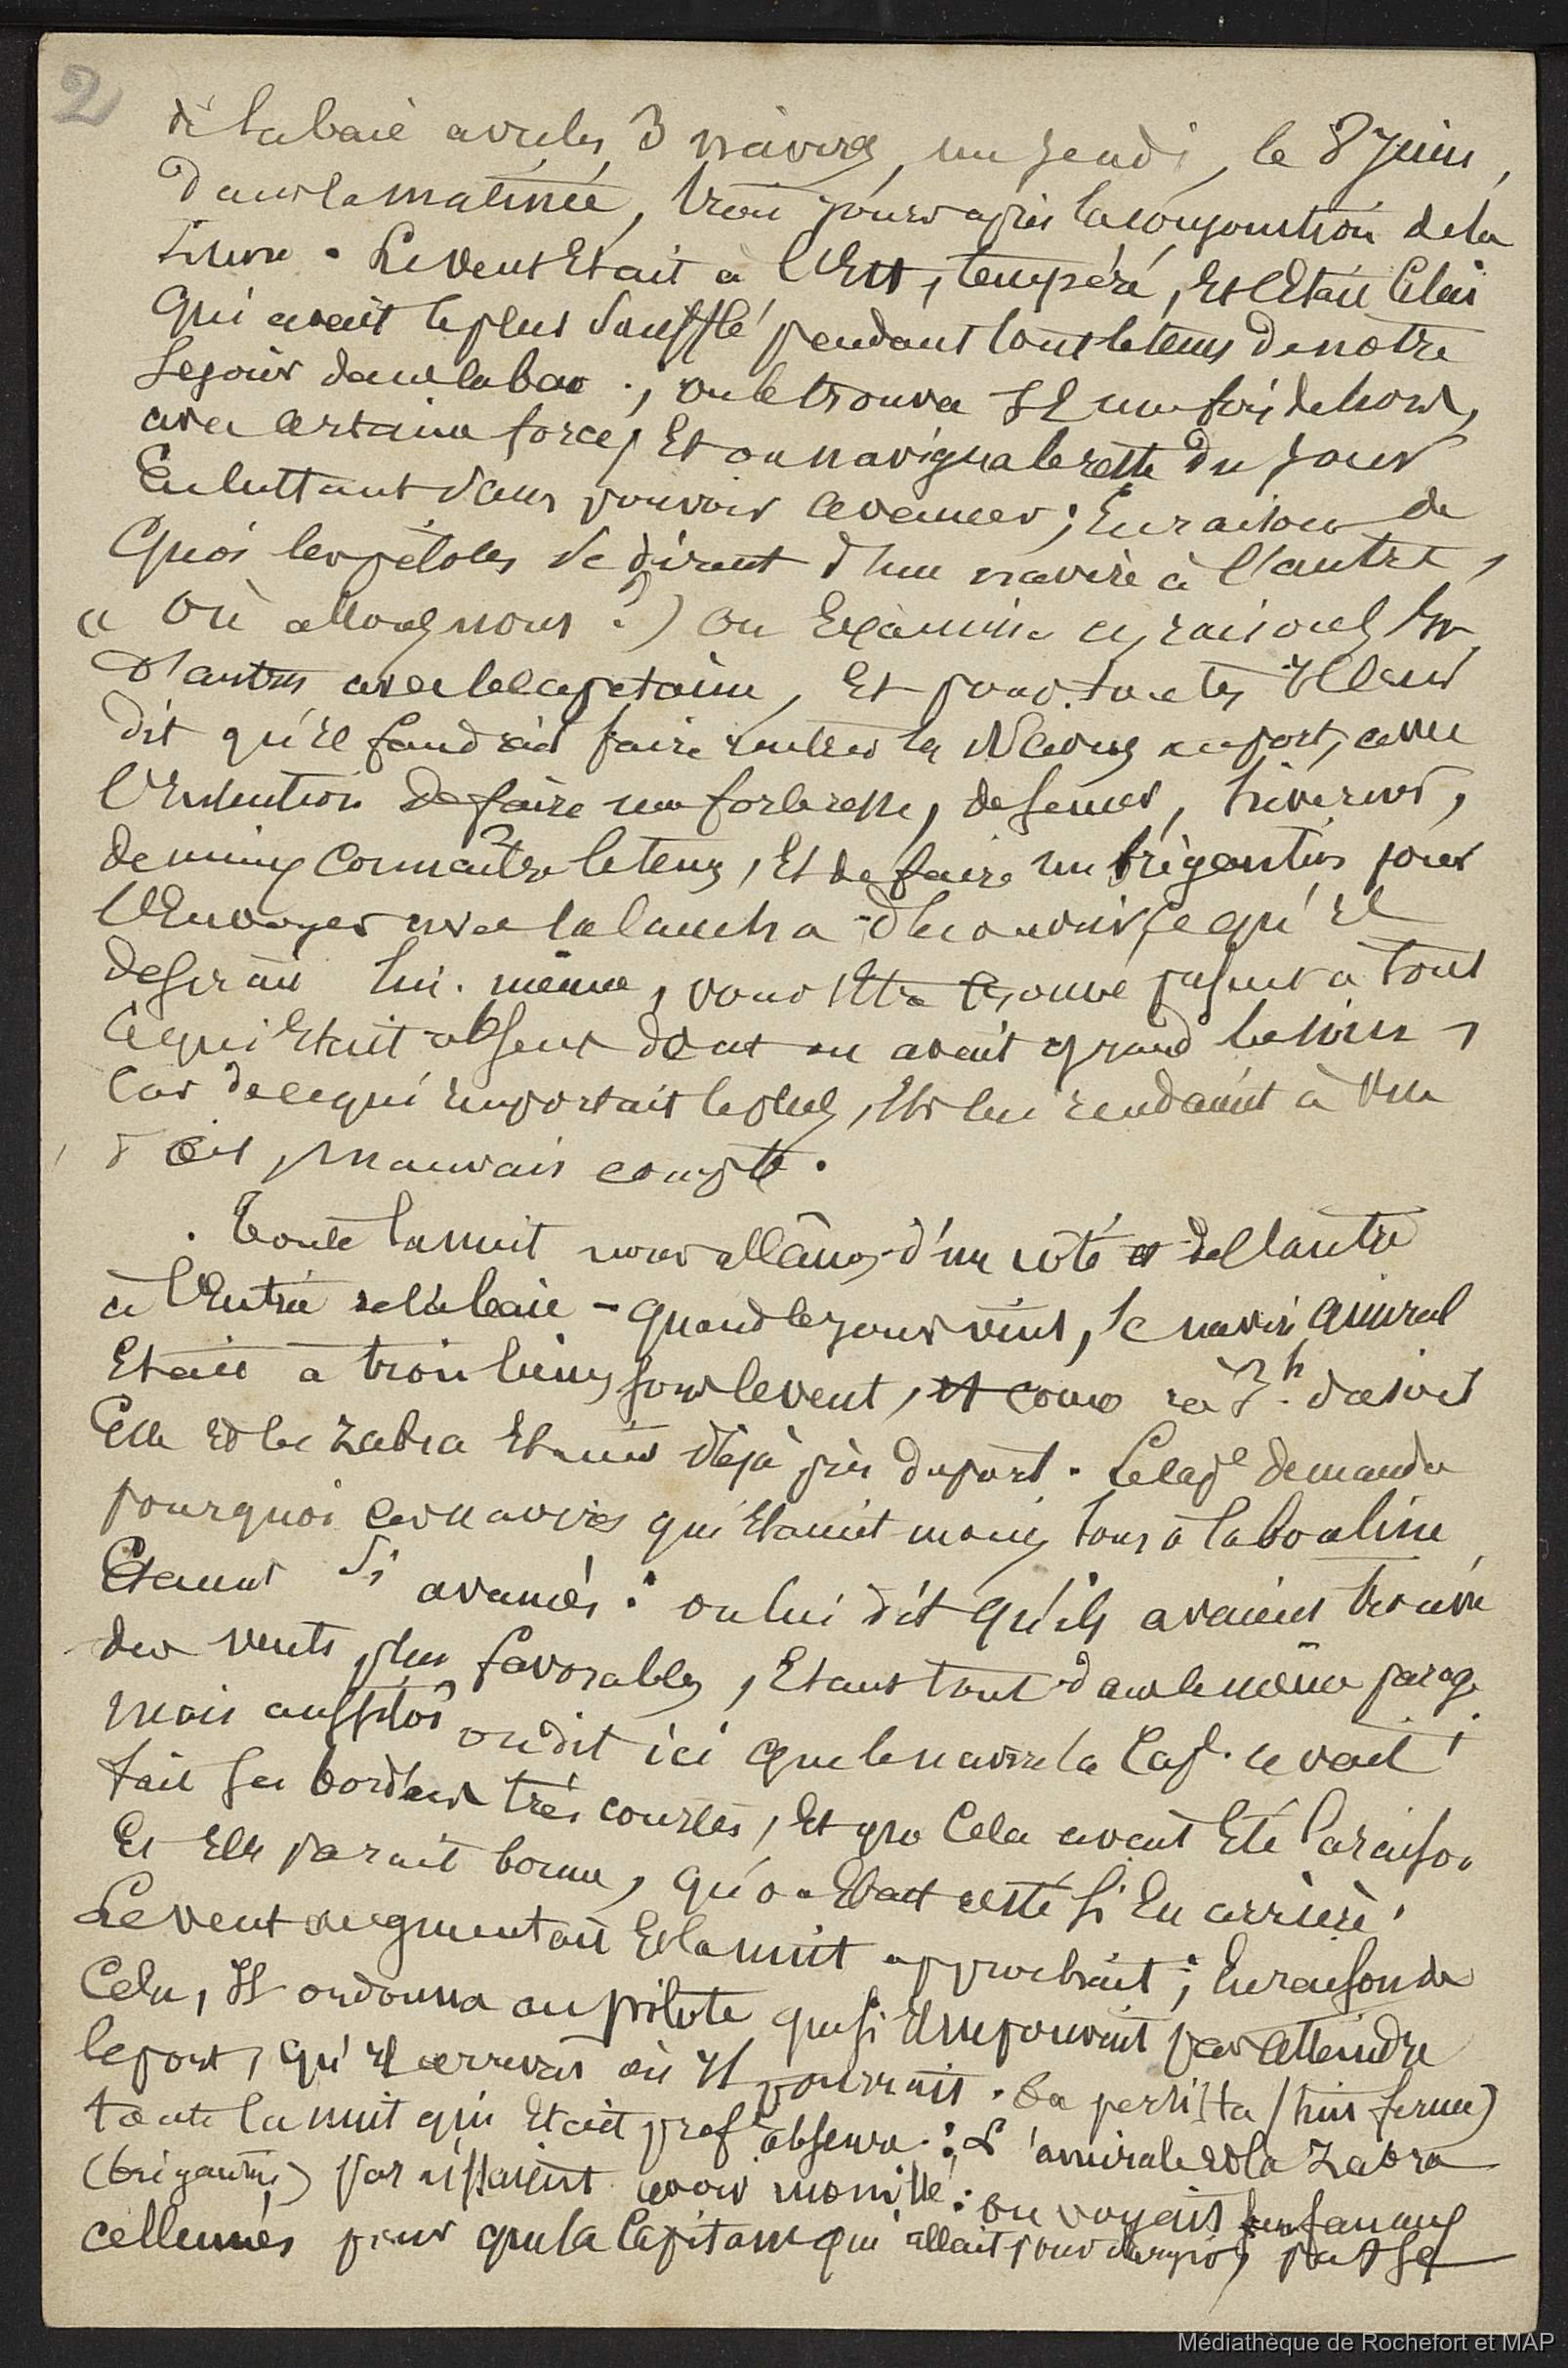 2
de la baie avec les 3 navires, un jeudi, le 8 Juin,
Dans la matinée, trois jours après la conjonction de la
Lune. Le vent Etait à l'Est, tempéré, Et c'Etait celui
Qui avait le plus soufflé pendant tout le tems De notre
sejour dans la baie ; on le trouva une fois dehors,
avec certaine force, Et on navigua le reste Du jour
En luttant sans pouvoir avancer ; En raison de
Quoi les pilotes se dirent d'un navire à l'autre,
« Où allons nous ? ) On Examina ces raisons Et
D'autres avec le capitaine, Et pour toutes Il leur
dit qu'il faudrait faire rentrer les Navires au port, avec
l'Intention de faire une forteresse, de semer, hiverner,
de mieux connaître le tems, Et de faire un brigantin pour
l'Envoyer avec la lancha découvrir ce qu'il
desirait lui-même, pour Etre trouvé présent à tout
ce qui Etait absent dont on avait grand besoin,
Car de ce qui importait le plus, Ils lui rendaient à vue
d'œil, mauvais compte.
Toute la nuit nous allâmes d'un côté et de l'autre
à l'Entrée de la baie - Quand le jour vint, le navire amiral
Etait à trois lieues sous le vent, et comme à 3h. du soir
Elle Et la zabra Etaient déjà près du port. Le Cape demanda
pourquoi ces navires qui Etaient moins bons à la bouline
Etaient si avancés : on lui dit qu'ils avaient trouvé
des vents plus favorables, Etant tout dans le même parage
Mais aussitôt on dit ici que le navire la Cap. avait
fait ses bordées très courtes, Et que cela avait Eté la raison
Et Elle parait bonne, qu'on Etait resté si En arrière.
Le vent augmentait Et la nuit approchait ; En raison de
Cela, Il ordonna au pilote que si Il ne pouvait pas atteindre
le port, qu'il arrivât où Il pourrait. On persista (tint ferme)
toute la nuit qui Etait profe obscure : L'amirale Et la Zabra
(brigantin) paraissaient avoir mouillé : on voyait leurs fanaux
allumés pour que la Capitane qui allait